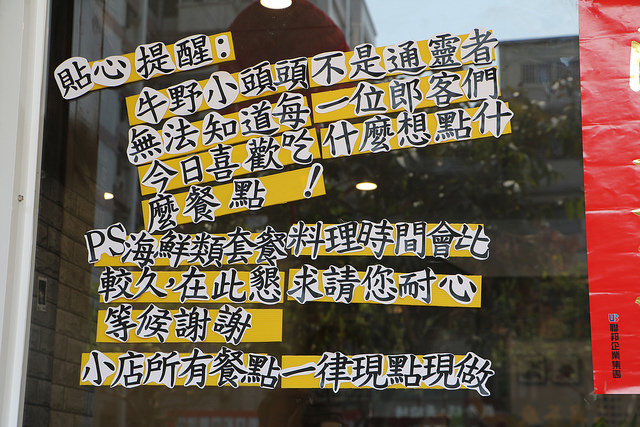 貼心提醒：
牛野小頭頭不是通靈者
無法知道每一位郎客們
今日喜歡吃什麼想點什
麼餐點！
PS.海鮮類套餐料理時間會比
較久，在此懇求請您耐心
等候謝謝
小店所有餐點一律現點現做
聯邦企業集團